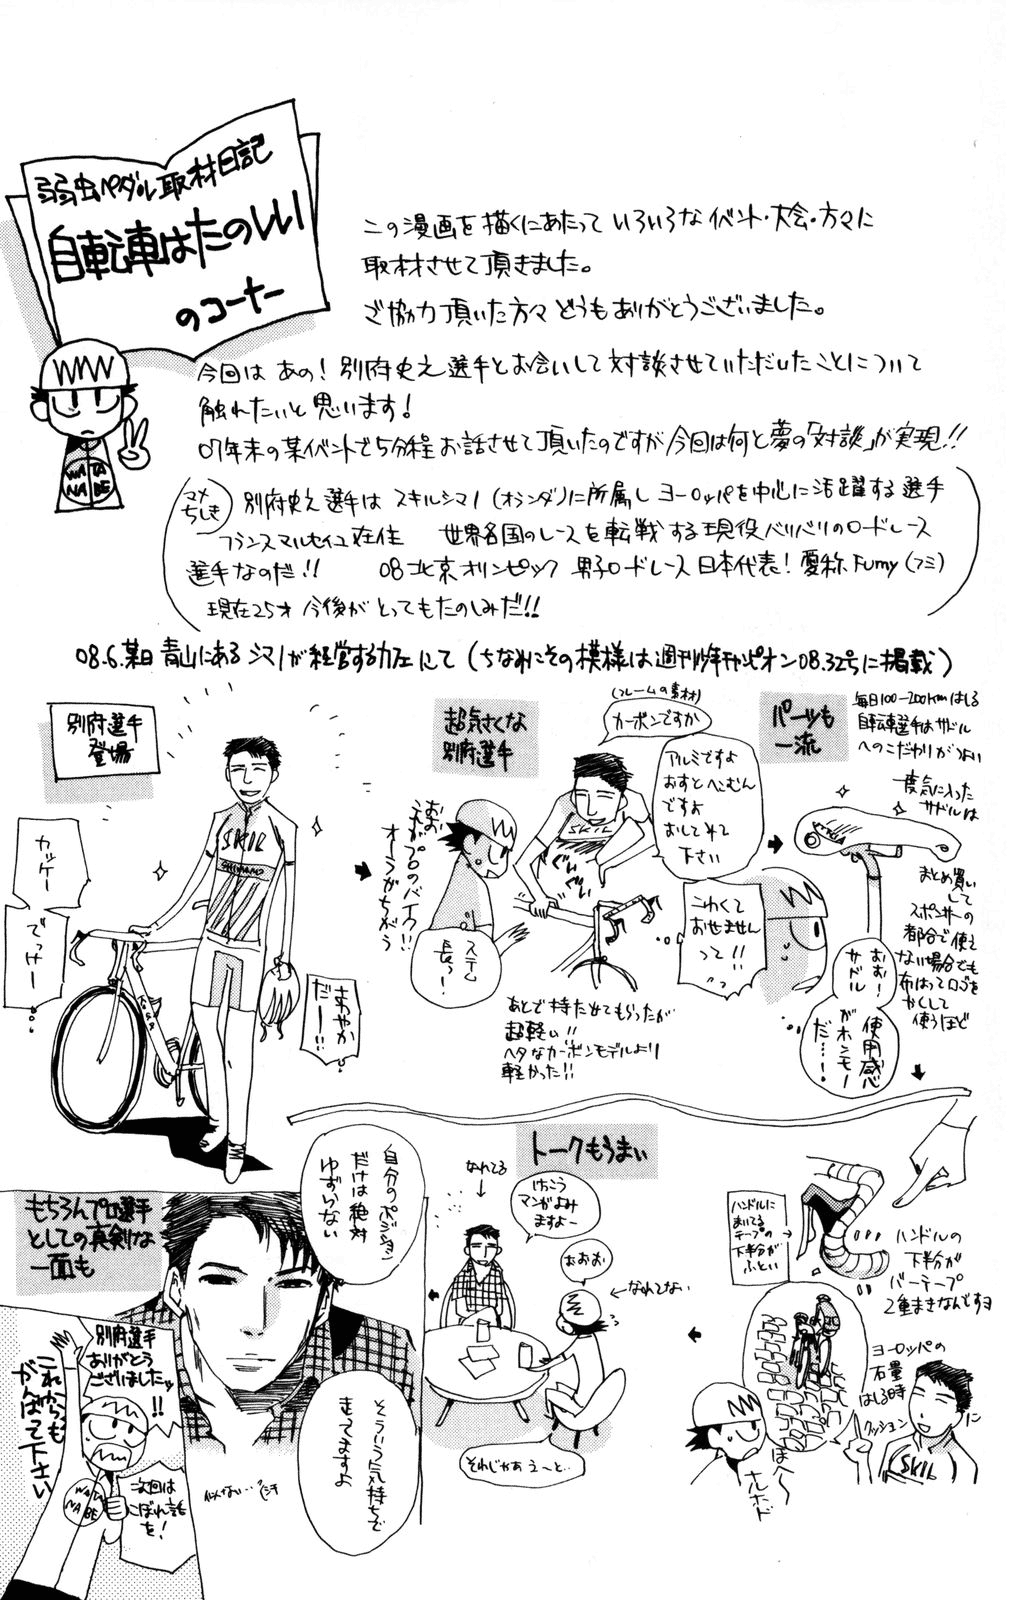 弱虫ペダル取材日記
自転車はたのしい
のコーナー
この漫画を描くにあたっていろいろなイベント・大会・方々に
取材させて頂きました。
ご協力頂いた方々どうもありがとうございました。
今回は あの! 別府史之選手とお会いして対談させていただいたことについて
触れたいと思います!
07年末の某イベントで5分程お話させて頂いたのですが今回は何と夢の「対談」が実現!!
マメ
ちしき
別府史之選手は スキルシマノ(オランダ)に所属し ヨーロッパを中心に活躍する選手
フランスマルセイユ在住 世界各国のレースを転戦する現役バリバリのロードレース
選手なのだ!! 08北京オリンピック 男子ロードレース日本代表! 愛称Fumy(フミ)
現在25才 今後がとってもたのしみだ!!
08.6.某日 青山にあるシマノが経営するカフェにて(ちなみにその模様は週刊少年チャンピオン08.32号に掲載)
別府選手
登場
カッケー
でっけー
SKIL
SHIMANO
Koga
さわやか
だー!!
超気さくな
別府選手
(フレームの素材)
カーボンですか
アルミですよ
おすとへこむん
ですよ
おしてみて
下さい
SKIL
おお
これがプロのバイク!!
オーラがちがう
ステム
長っ!
こわくて
おせません
って!!
あとで持たせてもらったが
超軽い!!
ヘタなカーボンモデルより
軽かった!!
パーツも
一流
毎日100-200kmはしる
自転車選手はサドル
へのこだわりがつよい
一度気に入った
サドルは
まとめ買い
して
スポンサーの
都合で使え
ない場合でも
布はってロゴを
かくして
使うほど
おお!
サドル
がホンモー
使用感
だ…!
ハンドルに
まいてる
テープの
下半分が
ふとい
ハンドルの
下半分が
バーテープ
2重まきなんですヨ
ヨーロッパの
石畳
はしる時
クッション
に
SKIL
ほへ〜
ナルホド
トークもうまい
なれてる
けっこう
マンガよみ
ますよー
おおお
←なれてない
それじゃあ え〜と…
もちろんプロ選手
としての真剣な
一面も
自分のポジション
だけは絶対
ゆずらない
そういう気持ちで
走ってますよ
似てない…
別府選手
ありがとう
ございましたッ
!!
これからも
がんばって下さい
次回は
こぼれ話
を!
WATA
NABE